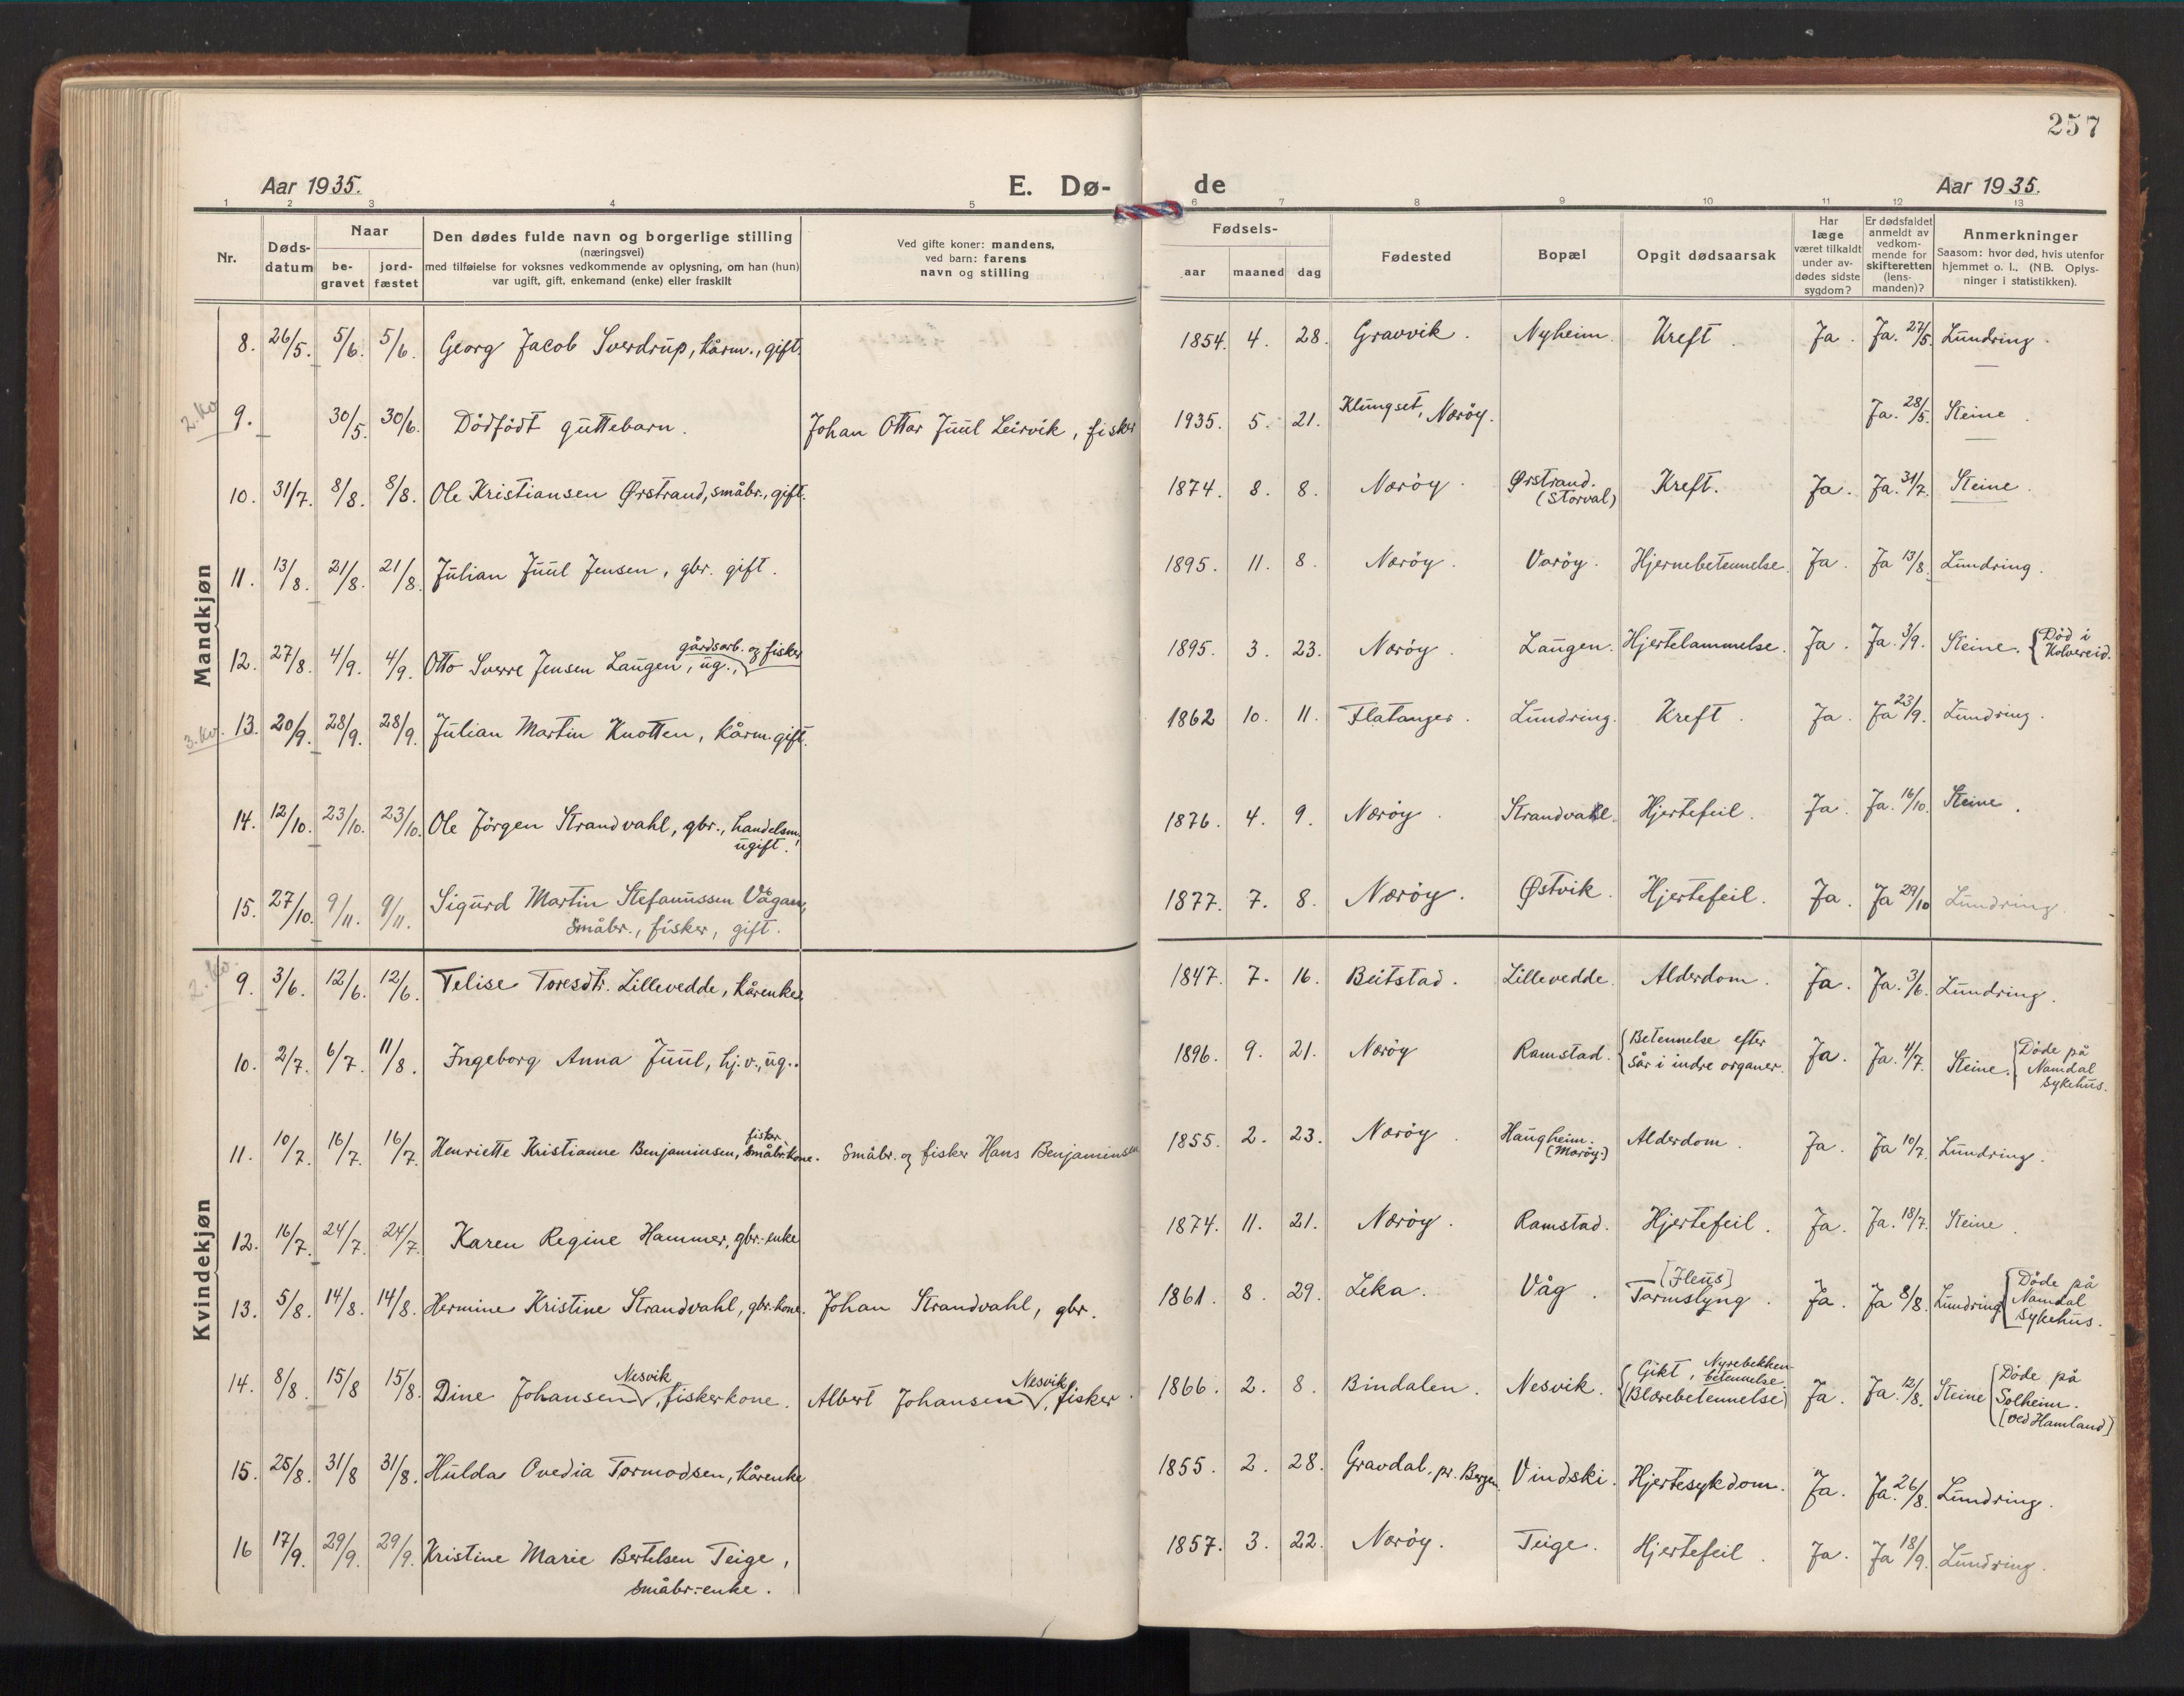 257
Aar 1935.
E. Dø-
de
Aar 1935.
1 2 3 4 5 6 7 8 9 10 11 12 13
Nr.
Døds-
datum
Naar
be-
gravet
jord-
fæstet
Den dødes fulde navn og borgerlige stilling
(næringsvei)
med tilføielse for voksnes vedkommende av oplysning, om han (hun)
var ugift, gift, enkemand (enke) eller fraskilt
Ved gifte koner: mandens,
ved barn: farens
navn og stilling
Fødsels-
aar maaned dag
Fødested
Bopæl
Opgit dødsaarsak
Har
læge
været tilkaldt
under av-
dødes sidste
sygdom?
Er dødsfaldet
anmeldt av
vedkom-
mende for
skifteretten
(lens-
manden)?
Anmerkninger
Saasom: hvor død, hvis utenfor
hjemmet o. l., (NB. Oplys-
ninger i statistikken).
Mandkjøn
8. 26/5. 5/6. 5/6. Georg Jacob Sverdrup, kårm., gift. 1854. 4. 28. Gravvik. Nyheim. Kreft. Ja. Ja. 27/5. Lundring.
2. Kv
9. 30/5. 30/6. Dödfödt guttebarn. Johan Ottar Juul Leirvik, fisker 1935. 5. 21. Klungset, Næröy. Ja. 28/5. Steine.
10. 31/7. 8/8. 8/8. Ole Kristiansen Ørstrand, småbr., gift. 1874. 8. 8. Nærøy. Ørstrand. Kreft. Ja. Ja. 31/7. Steine.
(Storval)
11. 13/8. 21/8. 21/8. Julian Juul Jensen, gbr. gift. 1895. 11. 8. Næröy. Varöy. Hjernebetennelse. Ja. Ja 13/8. Lundring.
gårdsarb. og fisker
12. 27/8. 4/9. 4/9. Otto Sverre Jensen Laugen, ug., 1895. 3. 23. Nærøy. Laugen. Hjertelammelse. Ja. Ja. 3/9. Steine. Död i
Kolvereid.
3. Kv.
13. 20/9. 28/9. 28/9. Julian Martin Knotten, kårm. gift. 1862 10. 11. Flatanger. Lundring. Kreft. Ja. Ja 23/9. Lundring.
14. 12/10. 23/10. 23/10. Ole Jörgen Strandvahl, gbr., handelsm., 1876. 4. 9. Nærøy. Strandvahl. Hjertefeil. Ja. Ja. 16/10. Steine.
ugift.
15. 27/10. 9/11. 9/11. Sigurd Martin Stefanussen Vågan, 1877. 7. 8. Nærøy. Østvik. Hjertefeil. Ja. Ja 29/10 Lundring.
Småbr., fisker, gift.
Kvindekjøn
2. Kv.
9. 3/6. 12/6. 12/6. Telise Toresdtr. Lillevedde, kårenke. 1847. 7. 16. Beitstad. Lillevedde. Alderdom. Ja. Ja. 3/6. Lundring.
10. 2/7. 6/7. 11/8. Ingeborg Anna Juul, hj.v., ug.. 1896. 9. 21. Nærøy Ramstad. Betennelse efter Ja. Ja. 4/7. Steine. Döde på
sår i indre organer. Namdal
sykehus.
fisker
11. 10/7. 16/7. 16/7. Henriette Kristianne Benjaminsen, småbr.kone. Småbr. og fisker Hans Benjaminsen 1855. 2. 23. Nærøy. Haugheim. Alderdom. Ja. Ja 10/7. Lundring.
(Marøy.)
12. 16/7. 24/7. 24/7. Karen Regine Hammer, gbr.-enke 1874. 11. 21. Nærøy. Ramstad. Hjertefeil. Ja. Ja. 18/7. Steine.
[Ileus]
13. 5/8. 14/8. 14/8. Hermine Kristine Strandvahl, gbr.kone. Johan Strandvahl, gbr. 1861. 8. 29. Leka. Våg. Tarmslyng. Ja. Ja 8/8. Lundring. Döde på
Namdal
sykehus.
Nesvik Nesvik
14. 8/8. 15/8 15/8. Dine Johansen, fiskerkone. Albert Johansen, fisker. 1866. 2. 8. Bindalen. Nesvik. Gikt, Nyrebekken-
betennelse Ja. Ja. 12/8. Steine Döde på
(Blærebetennelse) Solheim.
[ved Hamland]
15. 25/8. 31/8 31/8. Hulda Ovedia Tormodsen, kårenke 1855. 2. 28. Gravdal, pr. Bergen. Vindski. Hjertesykdom. Ja. Ja. 26/8. Lundring.
16 17/9. 29/9. 29/9. Kristine Marie Bertelsen Teige, 1857. 3. 22. Nærøy. Teige. Hjertefeil. Ja. Ja 18/9. Lundring.
småbr.-enke.